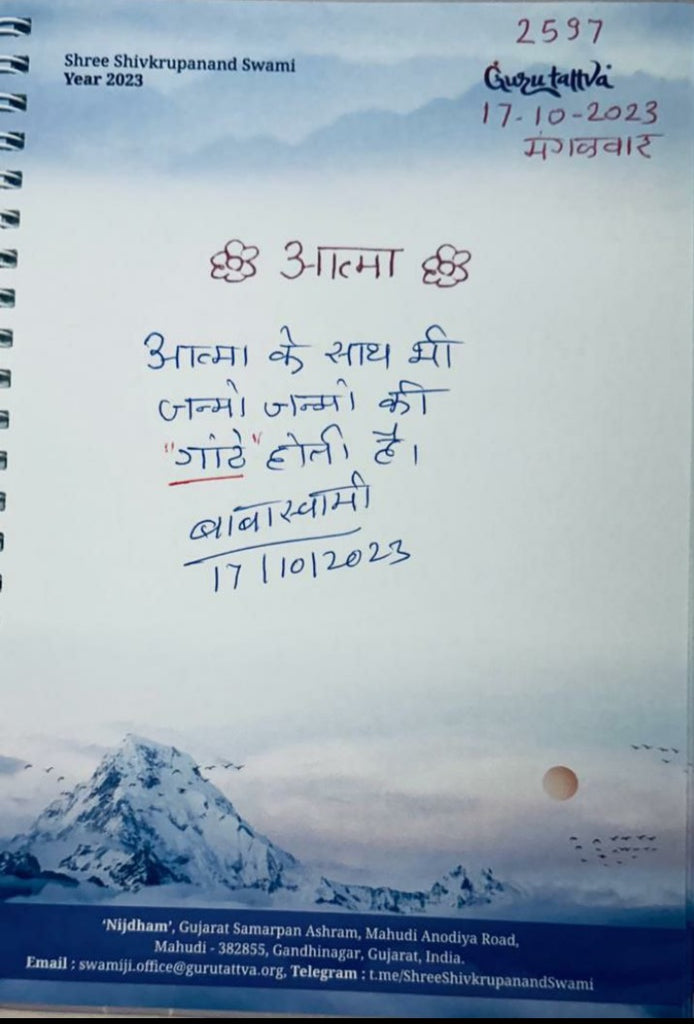 2597
Shree Shivkrupanand Swami
Year 2023
Gurutattva
17-10-2023
मंगळवार
आत्मा
आत्मा के साथ भी
जन्मो जन्मो की
"गांठे" होती है।
बाबास्वामी
17/10/2023
'Nijdham', Gujarat Samarpan Ashram, Mahudi Anodiya Road,
Mahudi - 382855, Gandhinagar, Gujarat, India.
Email : swamiji.office@gurutattva.org, Telegram : t.me/ShreeShivkrupanandSwami